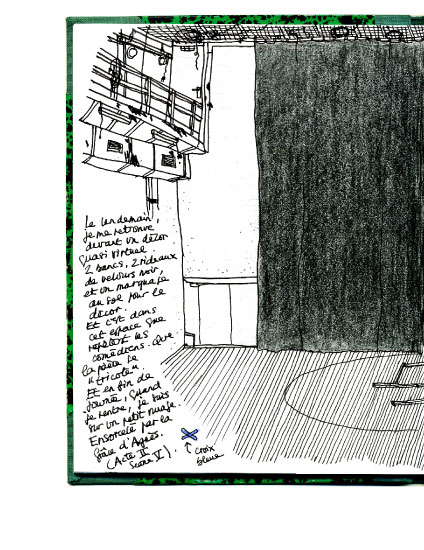 Le lendemain,
je me retrouve
devant un décor
quasi virtuel.
2 bancs, 2 rideaux
de velours noir,
et un marquage
au sol pour le
décor.
Et c'est dans
cet espace que
répètent les
comédiens. Que
la pièce se
"tricote".
Et en fin de
journée, quand
je rentre, je suis
sur un petit nuage.
Ensorcelé par la
grâce d'Agnès.
(Acte II
Scène V).
croix
bleue